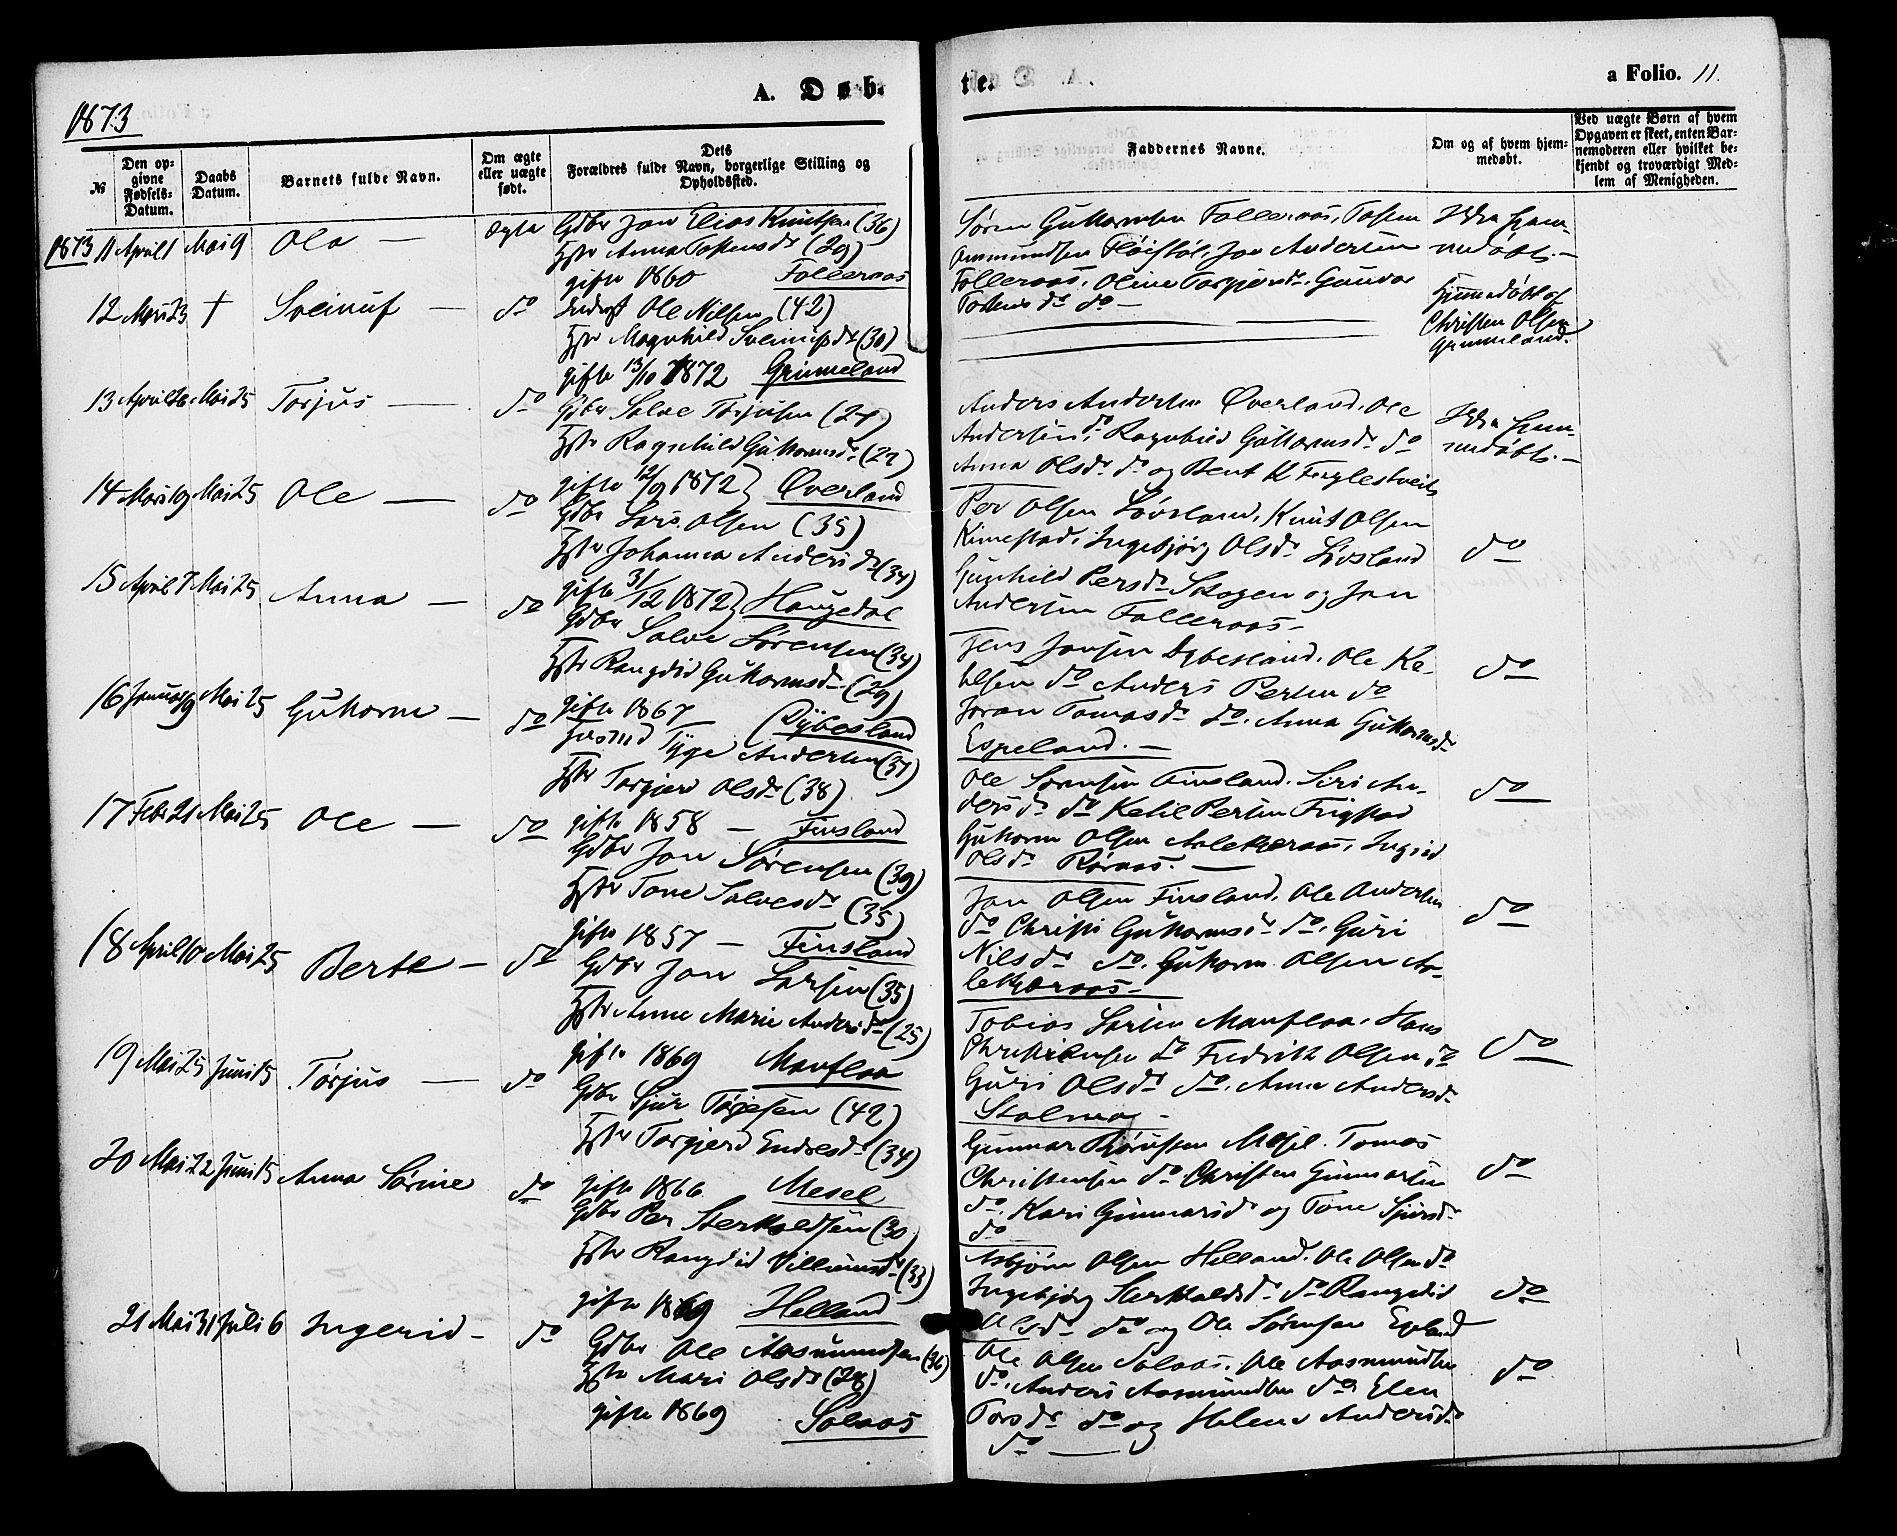 1873
A. Døb-
te.
a Folio. 11.
№
Den opgivne Fødsels-Datum.
Daabs Datum.
Barnets fulde Navn.
Om ægte eller uægte født.
Dets Forældres fulde Navn, borgerlige Stilling og Opholdssted.
Faddernes Navne.
Om og af hvem hjemmedøbt.
Ved uægte Børn af hvem Opgaven er skeet, enten Barnemoderen eller hvilket bekjendt og troværdigt Medlem af Menigheden.
1873 11 April 1 Mai 9 Ola — ægte Gdbr Jon Elias Knutsen (36)
Hstr Anna Tostensdr (29)
gifte 1860 Folleraas
Søren Guttormsen Folleraas, Tosten
Ommundsen Fløistøl, Jon Andersen
Folleraas, Oline Torgjersdr, Gunvor
Tostensdr do —
Ikke hjem-
medøbt. —
12 Mai 23 † Sveinuf — do Ole Nilsen (42)
Hstr Magnhild Sveinufsdr (30)
gifte 13/10 1872 Grimeland
Hjemmedøbt af
Christen Olsen
Grimeland.
13 April 26 Mai 25 Torjus — do Gdbr Salve Torjusen (24)
Hstr Ragnhild Guttormsdr (27)
gifte 12/9 1872 Øverland
Anders Andersen Øverland, Ole
Andersen do, Ragnhild Guttormsdr do
Anna Olsdr do og Bent K
Ikke hjem-
medøbt. —
14 Mai 19 Mai 25 Ole — do Gdbr Lars Olsen (35)
Hstr Johanna Andersdr (34)
gifte 31/12 1872 Haugedal
Per Olsen Løvsland, Knut Olsen
Kimestad, Ingebjørg Olsdr Løvsland
Gunhild Persdr Skogen og Jon
Andersen Folleraas —
do
15 April 7 Mai 25 Anna — do Gdbr Salve Sørensen (34)
Hstr Rangdid Guttormsdr (29)
gifte 1867 — Dybesland
Jens Jonsen Dybesland, Ole Ke-
tilsen do Anders Persen do
Joran Tomasdr do, Anna Guttormsdr
Espeland. —
do
16 Januar 19 Mai 25 Guttorm — do Husmd Tyge Andersen (37)
Hstr Torgjerd Olsdr (38)
gifte 1858 — Finsland
Ole Sørensen Finsland, Siri An-
dersdr do Ketil Persen Frigstad
Guttorm Olsen Aalekæraas, Ingrid
Olsdr Røraas. —
do
17 Febr 21 Mai 25 Ole — do Gdbr Jon Sørensen (39)
Hstr Tone Salvesdr (35)
gifte 1857 — Finsland
Jon Olsen Finsland, Ole Andersen
do Christi Guttormsdr do, Guri
Nilsdr do, Guttorm Olsen Aa-
lekæraas —
do
18 April 10 Mai 25 Berte — do Gdbr Jon Larsen (35)
Hstr Anne Marie Andersdr (25)
gifte 1869 Monflaa
Tobias Larsen Monflaa, Hans
Christensen do Fredrik Olsen do
Guri Olsdr do, Anna Andersdr
Stalmoe —
do
19 Mai 25 Juni 15 Torjus — do Gdbr Sjur Torjesen (42)
Hstr Torgjerd Endresdr (34)
gifte 1866 Mesel
Gunnar Mesel, Tomas
Christensen do Christen Gunnarsen
do, Kari Gunnarsdr og Tone Sjursdr
do —
do
20 Mai 22 Juni 15 Anna Sørine do Gdbr Per Sterkoldsen (30)
Hstr Rangdid Villumsdr (33)
gifte 1869 Helland
Asbjørn Olsen Helland, Ole Olsen do
Ingebjørg Sterkoldsdr do Rangdid
Olsdr do og Ole Sørensen Epeland
do
21 Mai 31 Juli 6 Ingerid — do Gdbr Ole Aasmundsen (36)
Hstr Mari Olsdr (28)
gifte 1869 Solaas
Ole Olsen Solaas, Ole Aasmundsen
do, Anders Aasmundsen do, Elen
Torsdr do og Helene Andersdr
do —
do